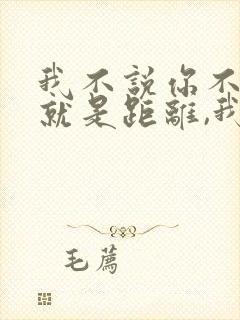 我不説你不
就是距離,我
毛薦